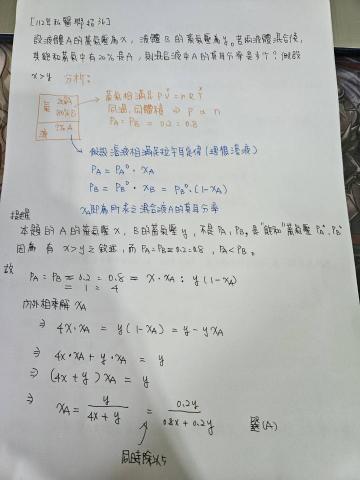 [112年私醫聯招36]
設液體A的蒸氣壓為x, 液體B的蒸氣壓為y。若兩液體混合後,
其飽和蒸氣中有20%是A, 則混合液中A的莫耳分率是多少? 假設
x>y
分析:
氣 20%A 80%B
液 ?%A
蒸氣相滿足PV=nRT
同溫, 同體積 ⇒ P ∝ n
PA:PB = 0.2:0.8
假設溶液相滿足拉午耳定律(理想溶液)
PA = PA°·xA
PB = PB°·xB = PB°·(1-xA)
xA即為所求之混合液A的莫耳分率
提醒
本題的A的蒸氣壓x, B的蒸氣壓y, 不是PA, PB, 是"飽和"蒸氣壓PA°, PB°
因為有x>y之敘述, 而PA:PB=0.2:0.8, PA<PB。
故
PA:PB = 0.2:0.8 = x·xA : y(1-xA)
= 1:4
內外相乘解xA
⇒ 4x·xA = y(1-xA) = y-yxA
⇒ 4x·xA + y·xA = y
⇒ (4x+y)xA = y
⇒ xA = y/(4x+y) = 0.2y/(0.8x+0.2y)
選(A)
同時除以5